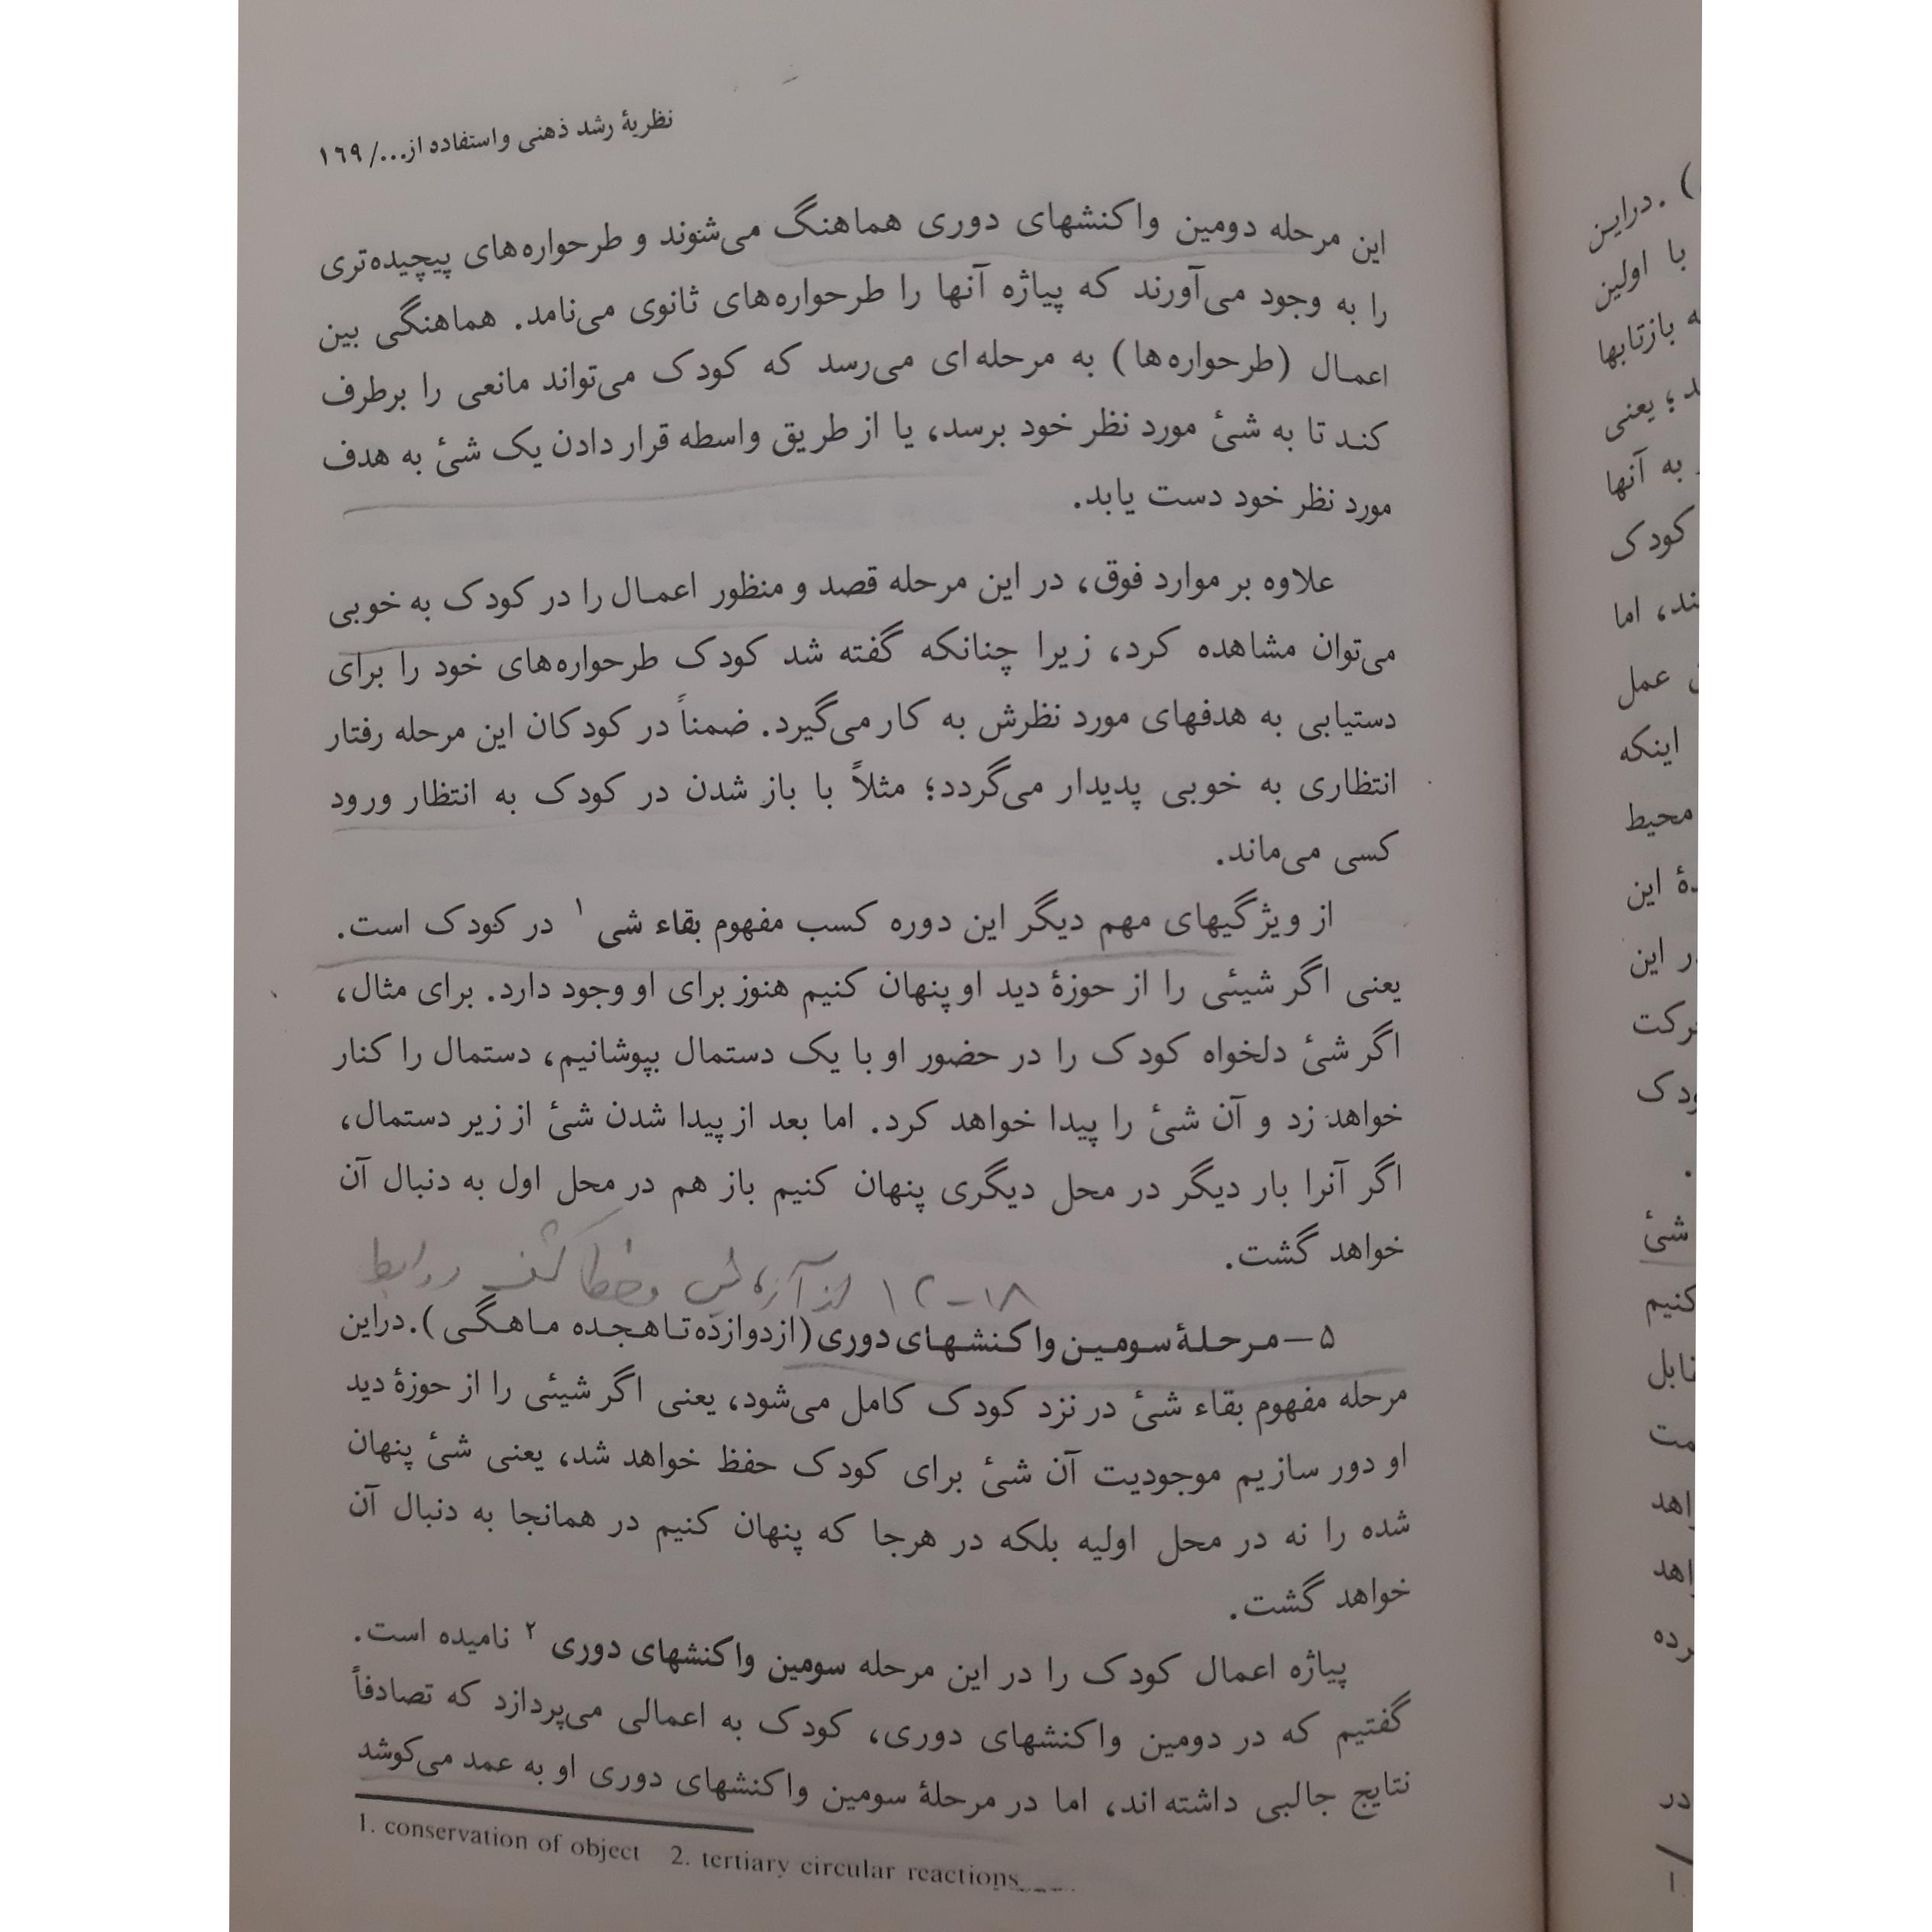 نظریهٔ رشد ذهنی و استفاده از.../ ۱۶۹
این مرحله دومین واکنشهای دوری هماهنگ می‌شوند و طرحواره‌های پیچیده‌تری
را به وجود می‌آورند که پیاژه آنها را طرحواره‌های ثانوی می‌نامد. هماهنگی بین
اعمال (طرحواره‌ها) به مرحله‌ای می‌رسد که کودک می‌تواند مانعی را برطرف
کند تا به شیٔ مورد نظر خود برسد، یا از طریق واسطه قرار دادن یک شیٔ به هدف
مورد نظر خود دست یابد.
علاوه بر موارد فوق، در این مرحله قصد و منظور اعمال را در کودک به خوبی
می‌توان مشاهده کرد، زیرا چنانکه گفته شد کودک طرحواره‌های خود را برای
دستیابی به هدفهای مورد نظرش به کار می‌گیرد. ضمناً در کودکان این مرحله رفتار
انتظاری به خوبی پدیدار می‌گردد؛ مثلاً با باز شدن در کودک به انتظار ورود
کسی می‌ماند.
از ویژگیهای مهم دیگر این دوره کسب مفهوم بقاء شی ۱ در کودک است.
یعنی اگر شیئی را از حوزهٔ دید او پنهان کنیم هنوز برای او وجود دارد. برای مثال،
اگر شیٔ دلخواه کودک را در حضور او با یک دستمال بپوشانیم، دستمال را کنار
خواهد زد و آن شیٔ را پیدا خواهد کرد. اما بعد از پیدا شدن شیٔ از زیر دستمال،
اگر آنرا بار دیگر در محل دیگری پنهان کنیم باز هم در محل اول به دنبال آن
خواهد گشت.
۱۲-۱۸ از آزمایش و خطا کشف روابط
۵ – مرحلهٔ سومین واکنشهای دوری (از دوازده تا هجده ماهگی). دراین
مرحله مفهوم بقاء شیٔ در نزد کودک کامل می‌شود، یعنی اگر شیئی را از حوزهٔ دید
او دور سازیم موجودیت آن شیٔ برای کودک حفظ خواهد شد، یعنی شیٔ پنهان
شده را نه در محل اولیه بلکه در هرجا که پنهان کنیم در همانجا به دنبال آن
خواهد گشت.
پیاژه اعمال کودک را در این مرحله سومین واکنشهای دوری ۲ نامیده است.
گفتیم که در دومین واکنشهای دوری، کودک به اعمالی می‌پردازد که تصادفاً
نتایج جالبی داشته‌اند، اما در مرحلهٔ سومین واکنشهای دوری او به عمد می‌کوشد
1. conservation of object 2. tertiary circular reactions
). دراین
با اولین
بازتابها
یعنی
به آنها
کودک
اما
عمل
اینکه
محیط
این
این
شیٔ
کنیم
در